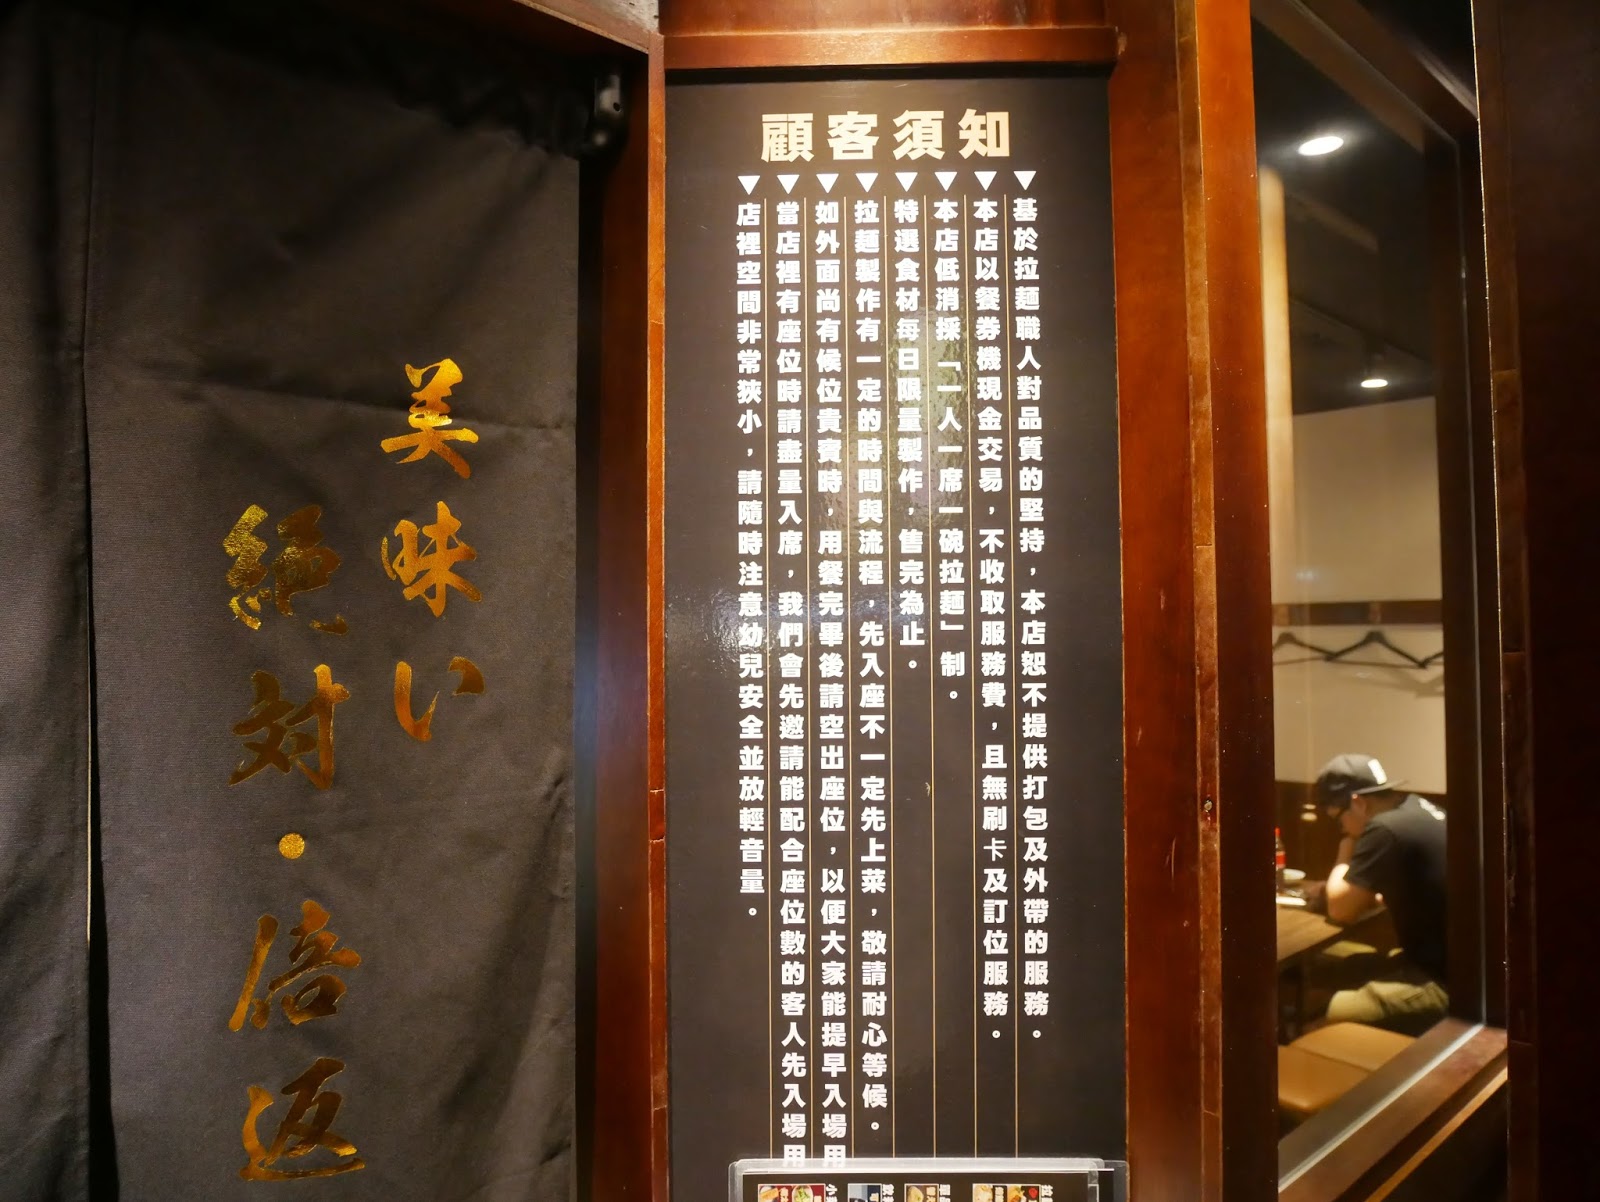 顧客須知
▼基於拉麵職人對品質的堅持，本店恕不提供打包及外帶的服務。
▼本店以餐券機現金交易，不收取服務費，且無刷卡及訂位服務。
▼本店低消採「一人一席一碗拉麵」制。
▼特選食材每日限量製作，售完為止。
▼拉麵製作有一定的時間與流程，先入座不一定先上菜，敬請耐心等候。
▼如外面尚有候位貴賓時，用餐完畢後請空出座位，以便大家能提早入場用
▼當店裡有座位時請盡量入席，我們會先邀請能配合座位數的客人先入場用
▼店裡空間非常狹小，請隨時注意幼兒安全並放輕音量。
美味い
絶対・倍返